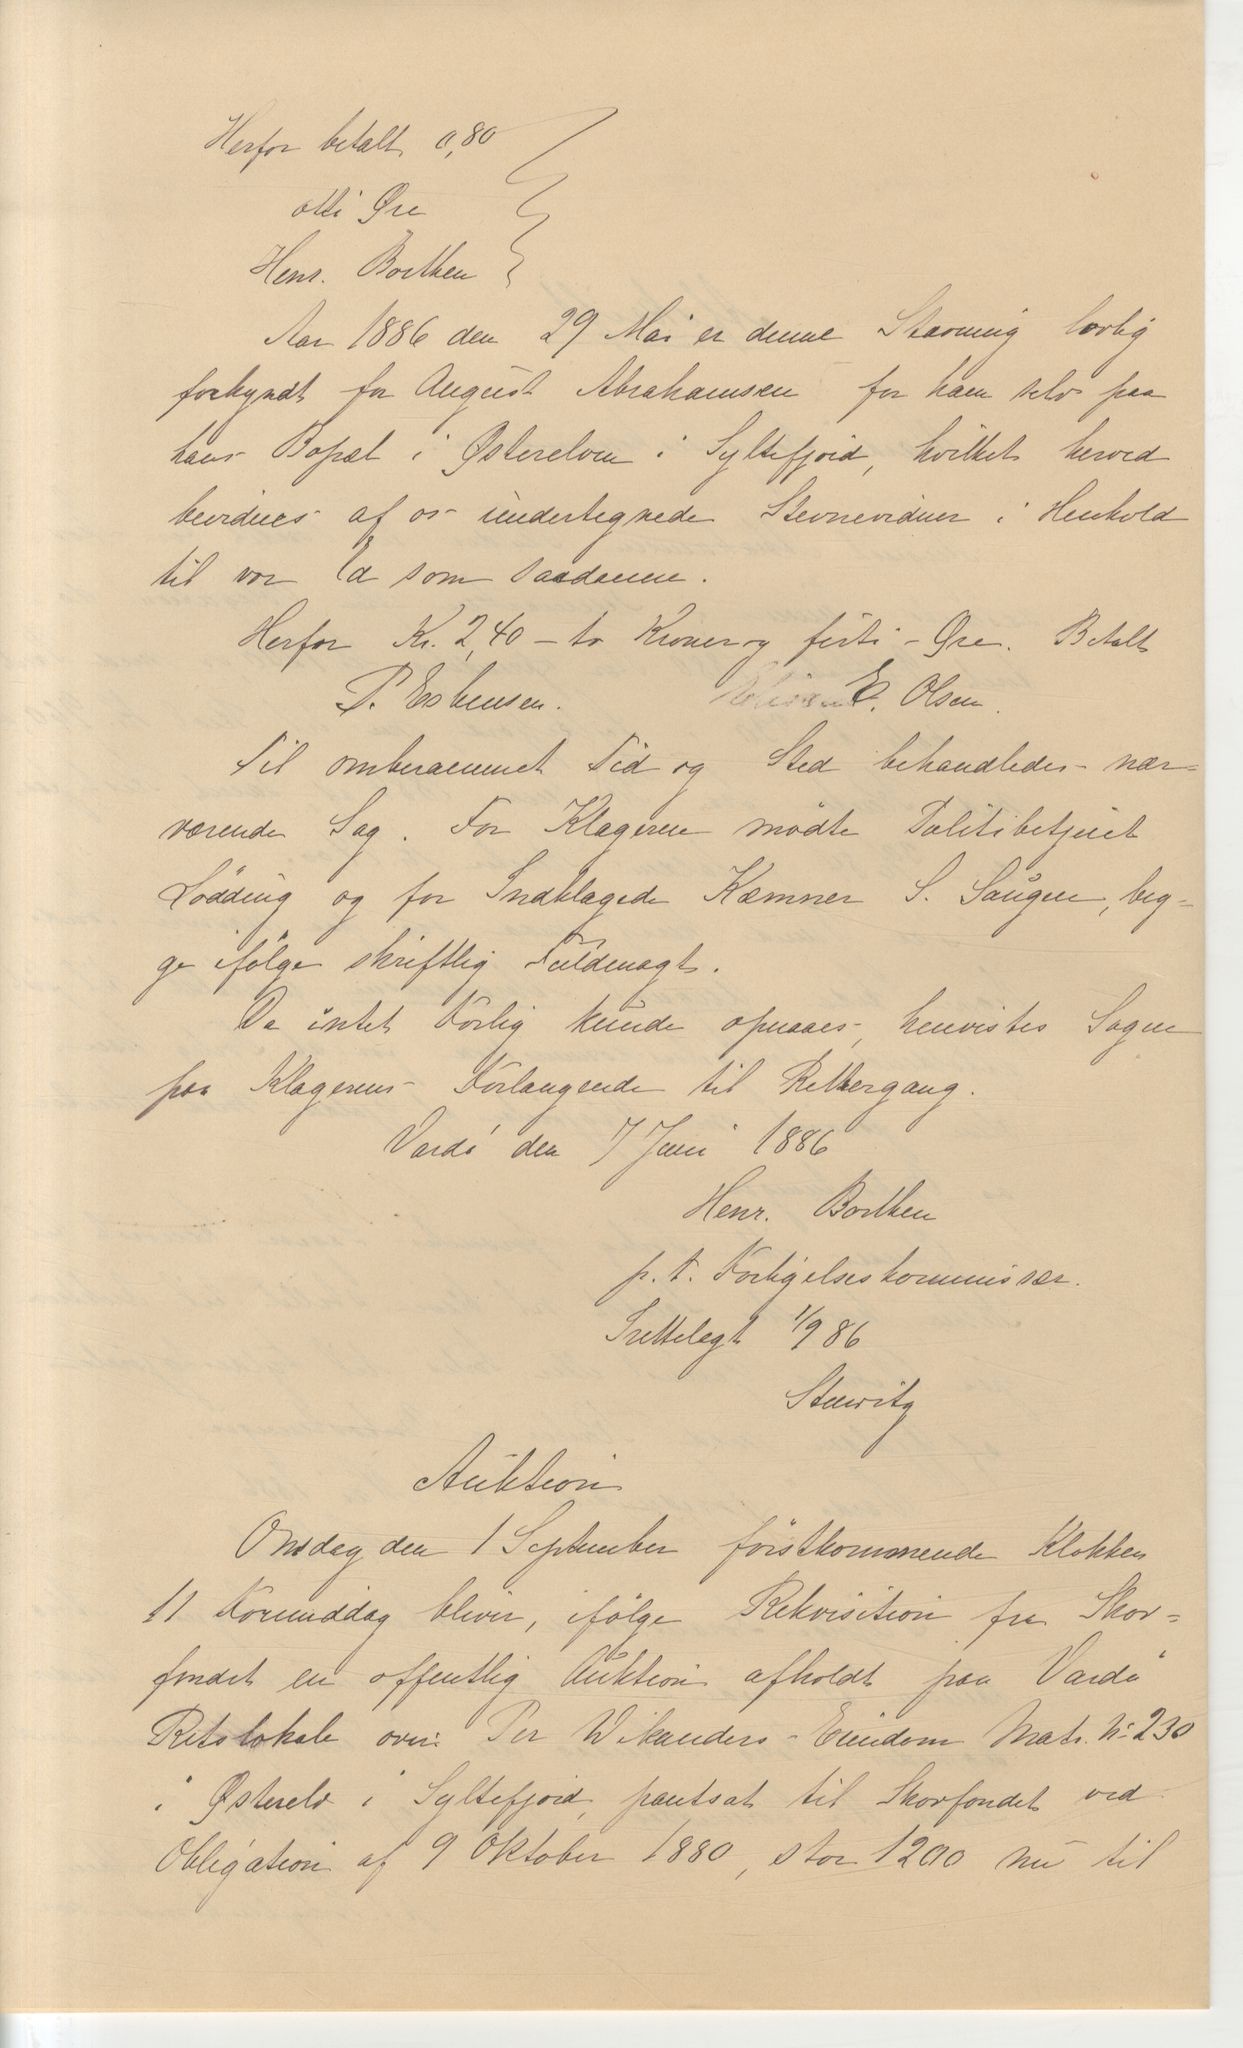 Herfor betalt 0,80
otti Øre
Henr. Bodtker
Aar 1886 den 29 Mai er denne Stævning lovlig
forkyndt for August Abrahamsen for ham selv paa
hans Bopæl i Østerelven i Syltefjord, hvilket herved
bevidnes af os undertegnede Stevnevidner i Henhold
til vor Ed som saadanne.
Herfor Kr. 2,40 - to Kroner og firti - Øre. Betalt
P. Esbensen. E. Olsen.
Til omberammet Tid og Sted behandledes nær-
værende Sag. For Klageren mödte Politibetjent
Lödding og for Indklagede Kæmner S. Saugen, beg-
ge ifölge skriftlig Fuldmagt.
Da intet Forlig kunde opnaaes, henvistes Sagen
paa Klagerens Forlangende til Rettergang.
Vardö den 7 Juni 1886
Henr. Bodtker
p. t. Forligelseskommissær.
Irettelagt 1/9 86
Steuwitz
Auktion
Onsdag den 1 September förstkommende Klokken
11 Formiddag bliver, ifölge Rekvisition fra Skov-
fondet en offentlig Auktion afholdt paa Vardö
Retslokale over Per Wikanders Eiendom Matr. No 230
i Østerelv i Syltefjord, pantsat til Skovfondet ved
Obligation af 9 Oktober 1880, stor 1200 nu til